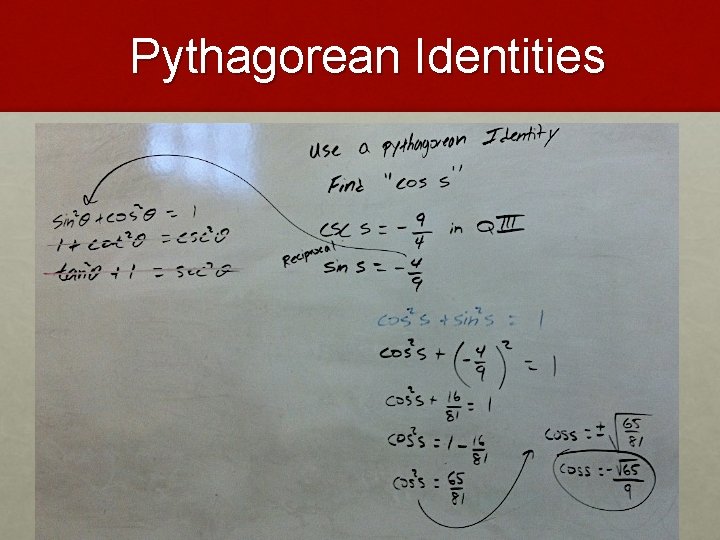 Pythagorean Identities
use a pythagorean Identity
Find "cos s"
sin²θ + cos²θ = 1
1 + cot²θ = csc²θ
tan²θ + 1 = sec²θ
csc s = - 9/4 in QIII
Reciprocal
sin s = - 4/9
cos²s + sin²s = 1
cos²s + (-4/9)² = 1
cos²s + 16/81 = 1
cos²s = 1 - 16/81
cos²s = 65/81
coss = ± √65/81
coss = - √65/9